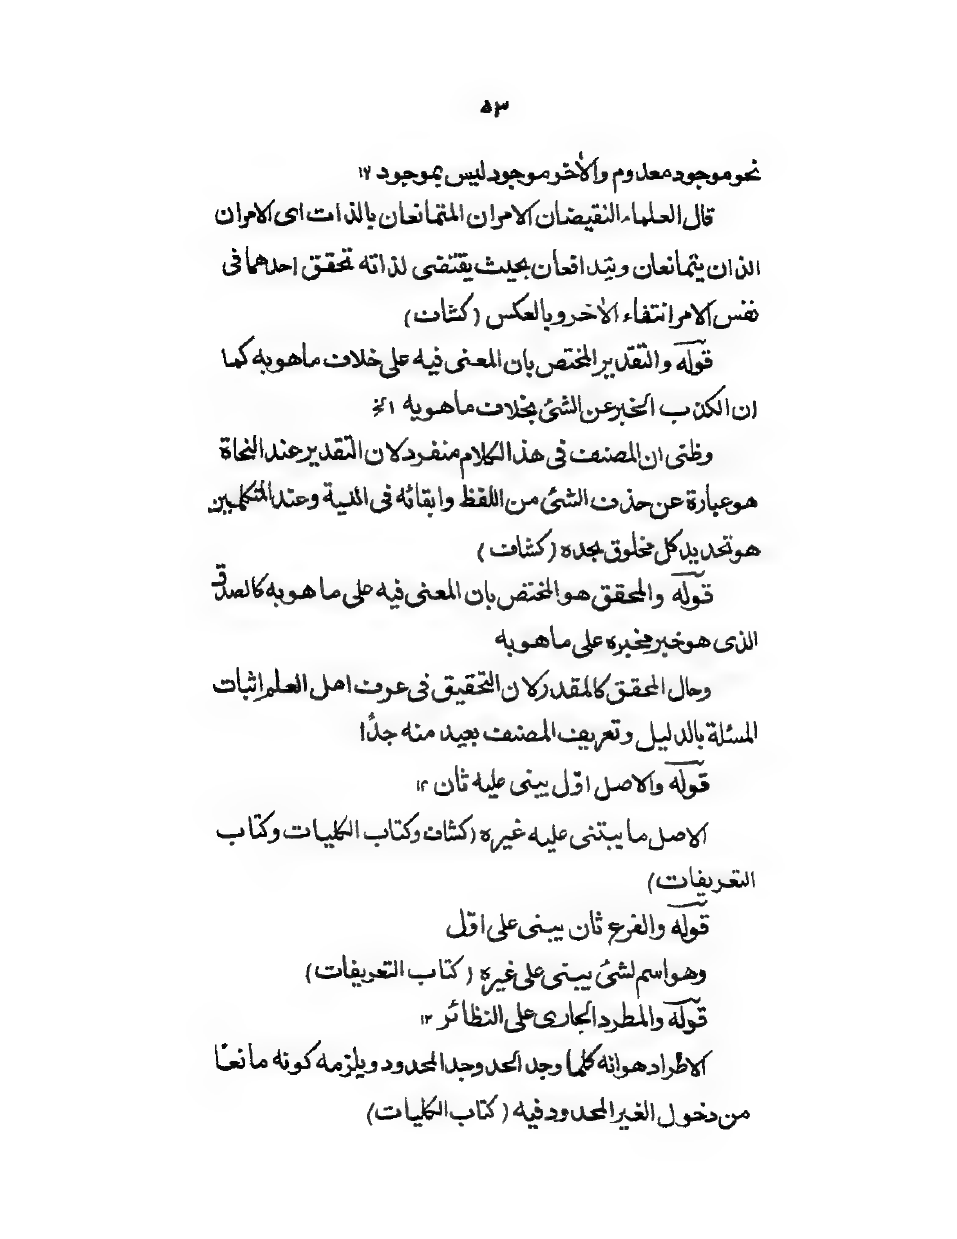 ٥٣
نحو موجود معدوم والأخر موجود ليس بموجود ١٢
قال العلماء النقيضان الامران المتمانعان بالذات اى الامران
الذان يتمانعان ويتدافعان بحيث يقتضى لذاته تحقق احدهما فى
نفس الامر انتفاء الأخر وبالعكس (كشاف)
قوله والتقدير المختص بان المعنى فيه على خلاف ماهوبه كما
ان الكذب الخبر عن الشئ بخلاف ماهوبه الخ
وظنى ان المصنف فى هذا الكلام منفرد لان التقدير عند النحاة
هو عبارة عن حذف الشئ من اللفظ وابقائه فى النية وعند المتكلمين
هو تحديد كل مخلوق بحده (كشاف)
قوله والمحقق هو المختص بان المعنى فيه على ما هو به كالصدق
الذى هو خبر مخبره على ماهوبه
وحال المحقق كالمقدر لان التحقيق فى عرف اهل العلم اثبات
المسئلة بالدليل وتعريف المصنف بعيد منه جدًا
قوله والاصل اوّل يبنى عليه ثان ١٢
الاصل ما يبتنى عليه غيره (كشاف وكتاب الكليات وكتاب
التعريفات)
قوله والفرع ثان يبنى على اوّل
وهو اسم لشئ يبنى على غيره (كتاب التعريفات)
قوله والمطرد الجارى على النظائر ١٢
الاطراد هو انه كلما وجد الحد وجد المحدود ويلزمه كونه مانعًا
من دخول الغير المحدود فيه (كتاب الكليات)